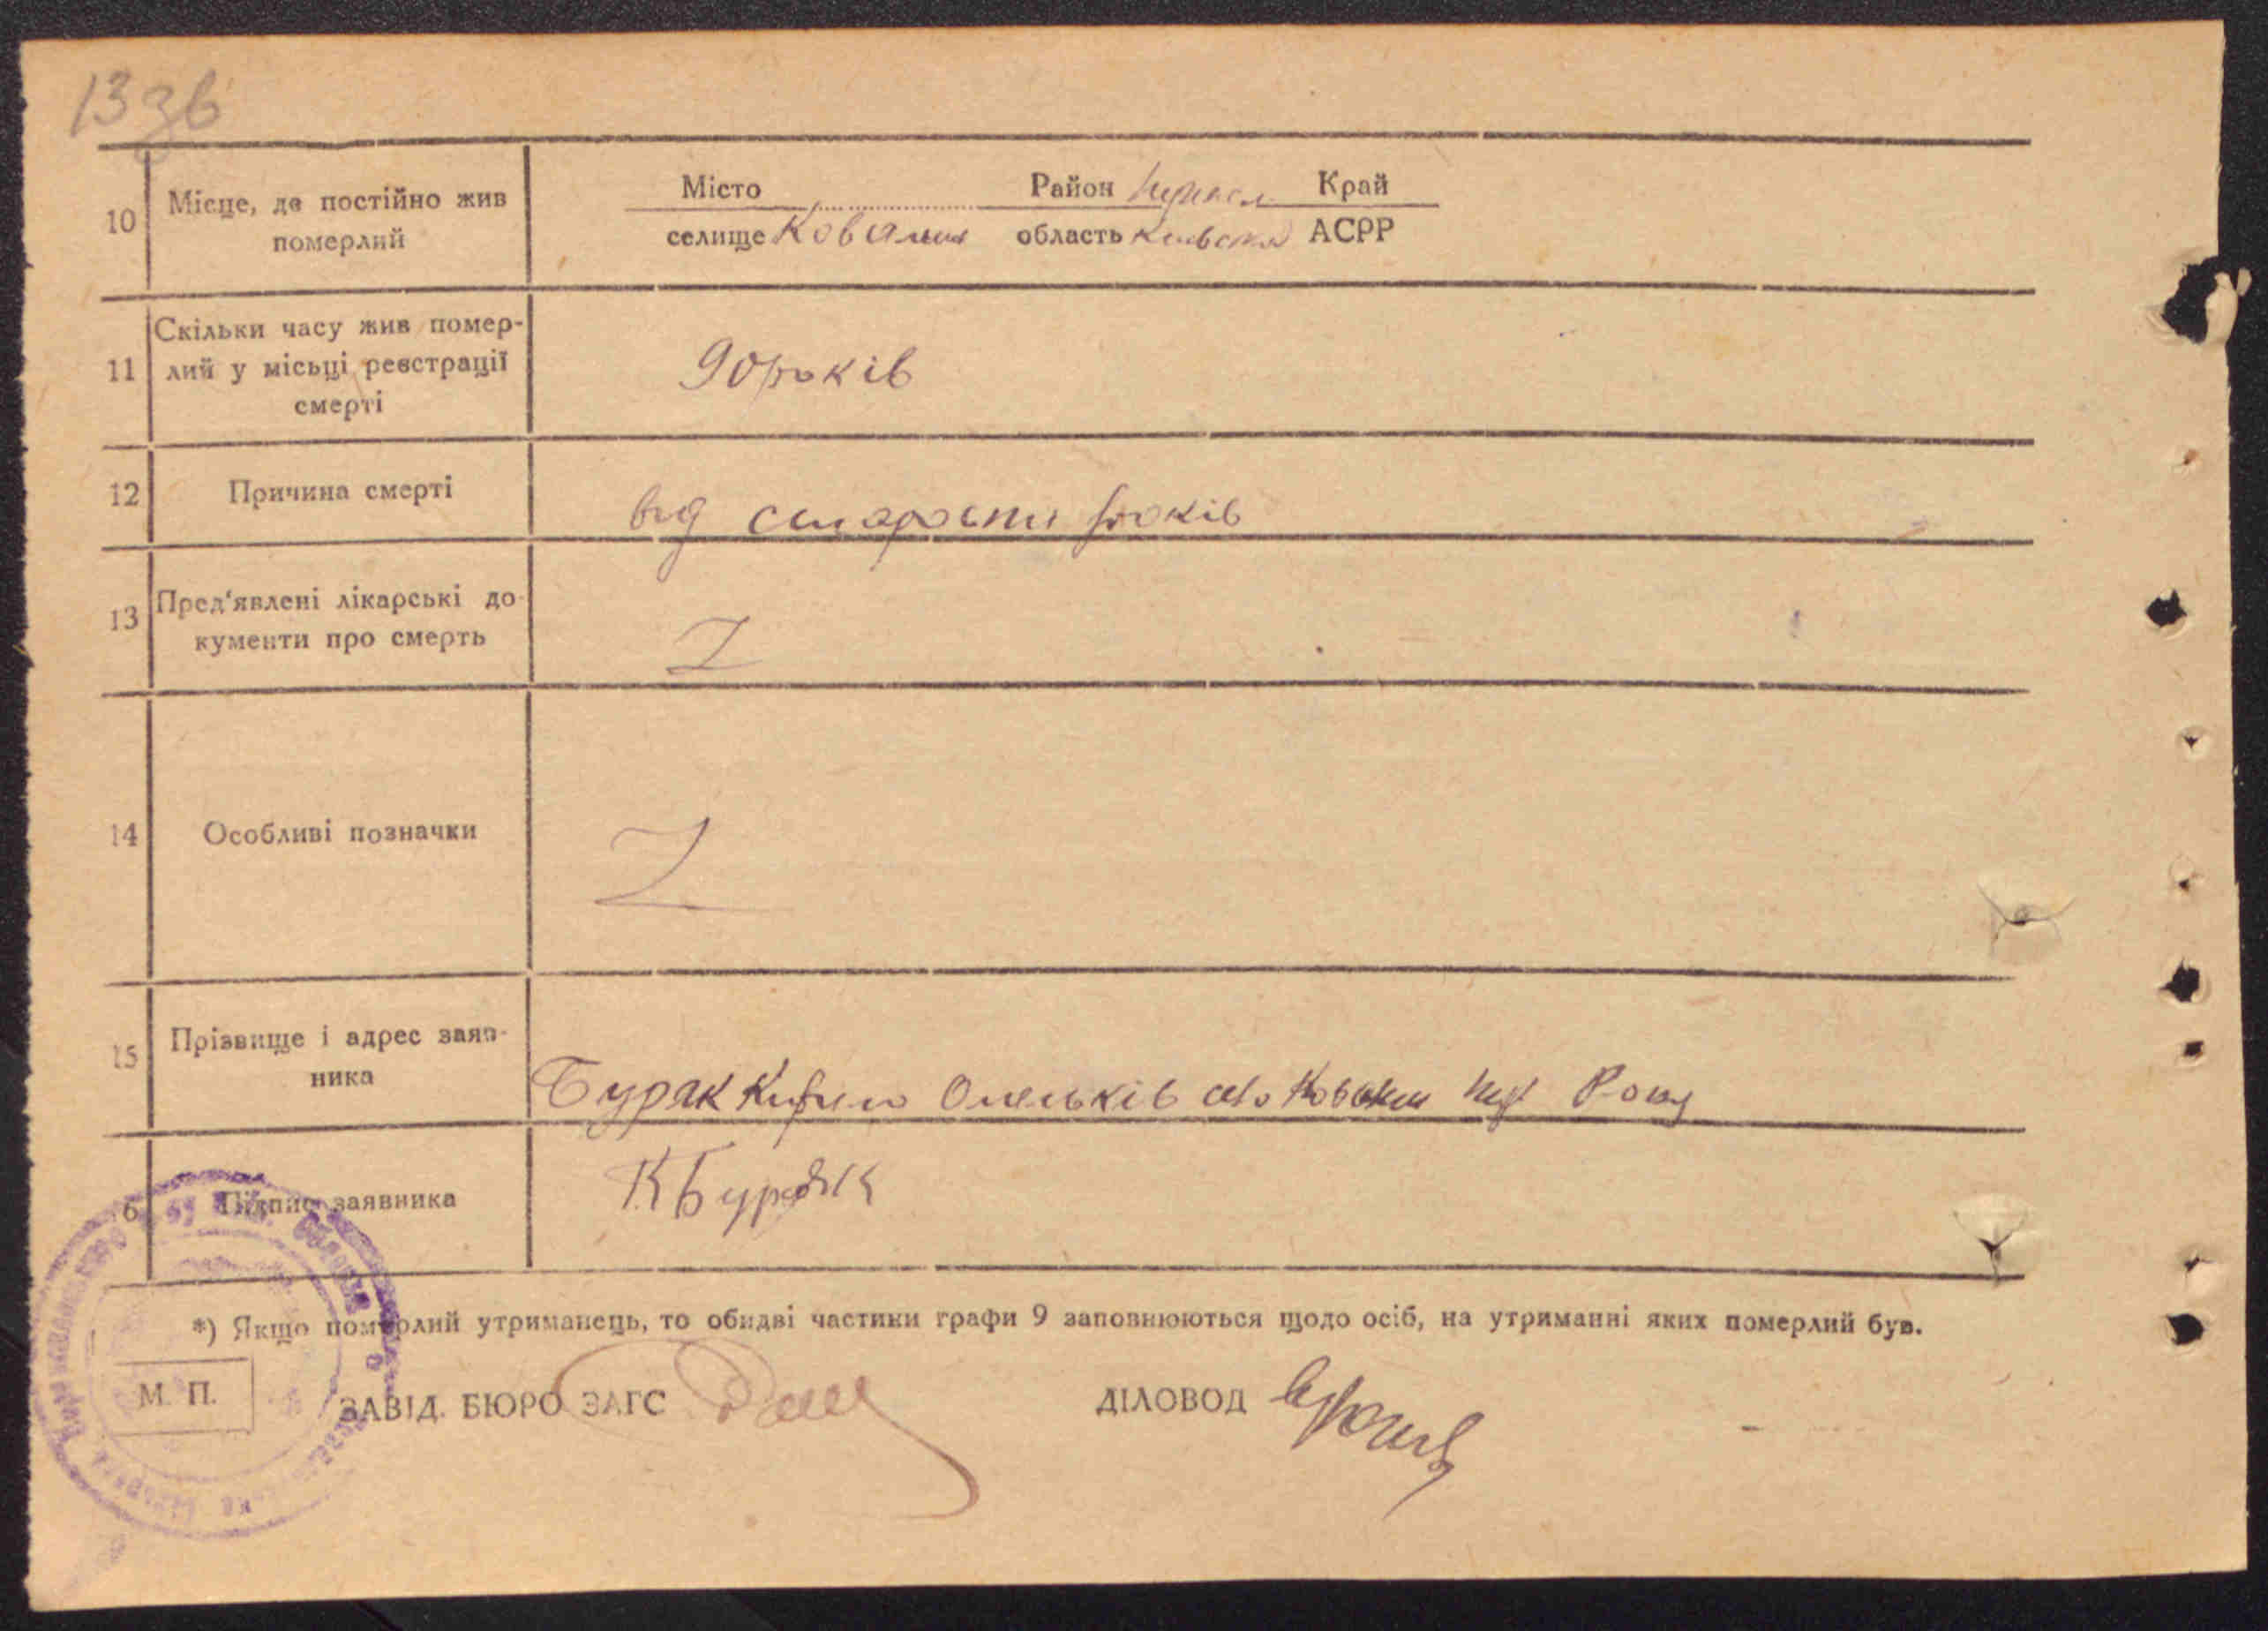 13 зв
10 Місце, де постійно жив померлий
Місто Район Край
селище Ковалин область Київська АСРР
11 Скільки часу жив помер-
лий у місьці реєстрації
смерті
90 років
12 Причина смерті
від старости років
13 Пред'явлені лікарські до-
кументи про смерть
Z
14 Особливі позначки
Z
15 Прізвище і адрес заяв-
ника
Буряк Кирило Омельків село Ковалин
6 Підпис заявника
К Буряк
*) Якщо померлий утриманець, то обидві частини графи 9 заповнюються щодо осіб, на утриманні яких померлий був.
М. П.
ЗАВІД. БЮРО ЗАГС
ДІЛОВОД